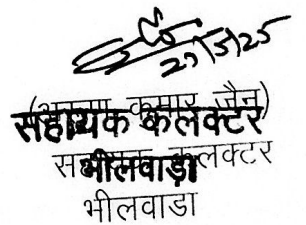 27/5/25
(अरुण कुमार जैन)
सहायक कलेक्टर
सहायक कलक्टर
भीलवाड़ा
भीलवाडा